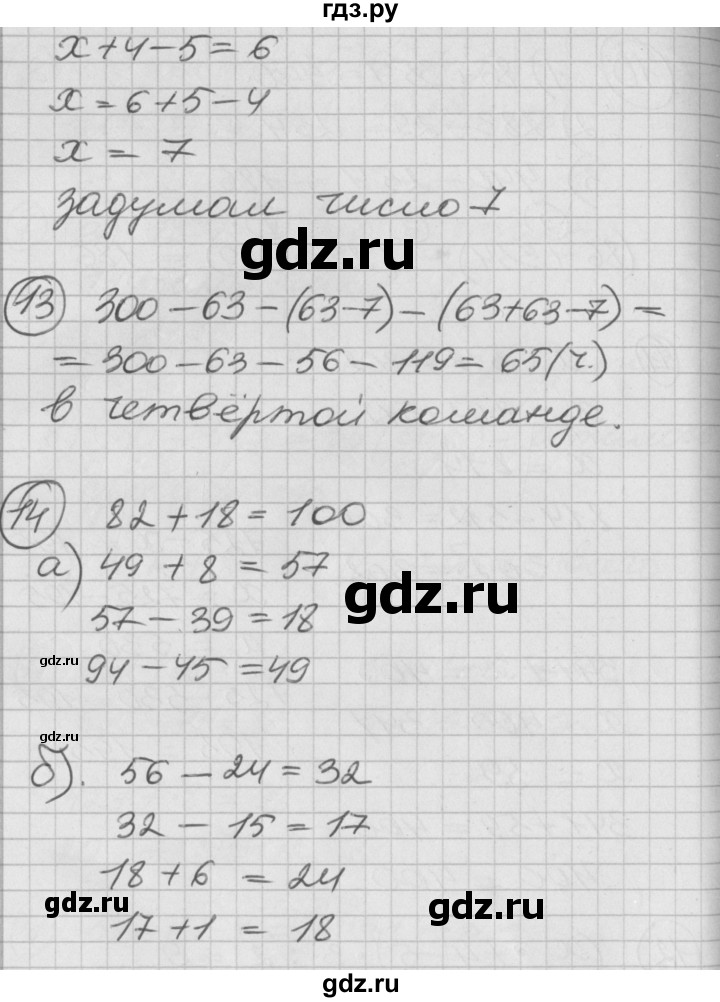 гдз.ру
x+4-5=6
x=6+5-4
x = 7
задумал число 7
gdz.ru
13 300-63-(63-7)-(63+63-7)=
=300-63-56-119=65(ч.)
в четвёртой команде.
14 82+18=100
а) 49+8=57
gdz.ru
57-39=18
gdz.ru 94-45=49
gdz.ru
б). 56-24=32
32-15=17
18+6=24
gdz.ru gdz.ru
17+1=18
gdz.ru